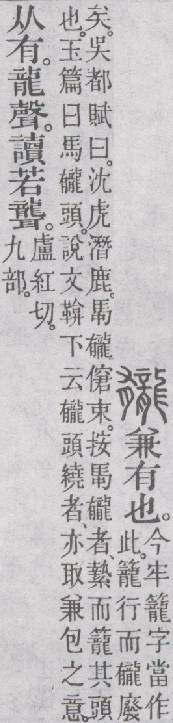 龓兼有也。
今牢籠字當作
此。籠行而龓廢
矣。吳都賦曰。沈虎潛鹿。馬龓僒束。按馬龓者、縶而籠其頭
也。玉篇曰馬龓頭。說文鞥下云龓頭繞者、亦取兼包之意。
从有。龍聲。讀若聾。
盧紅切。
九部。